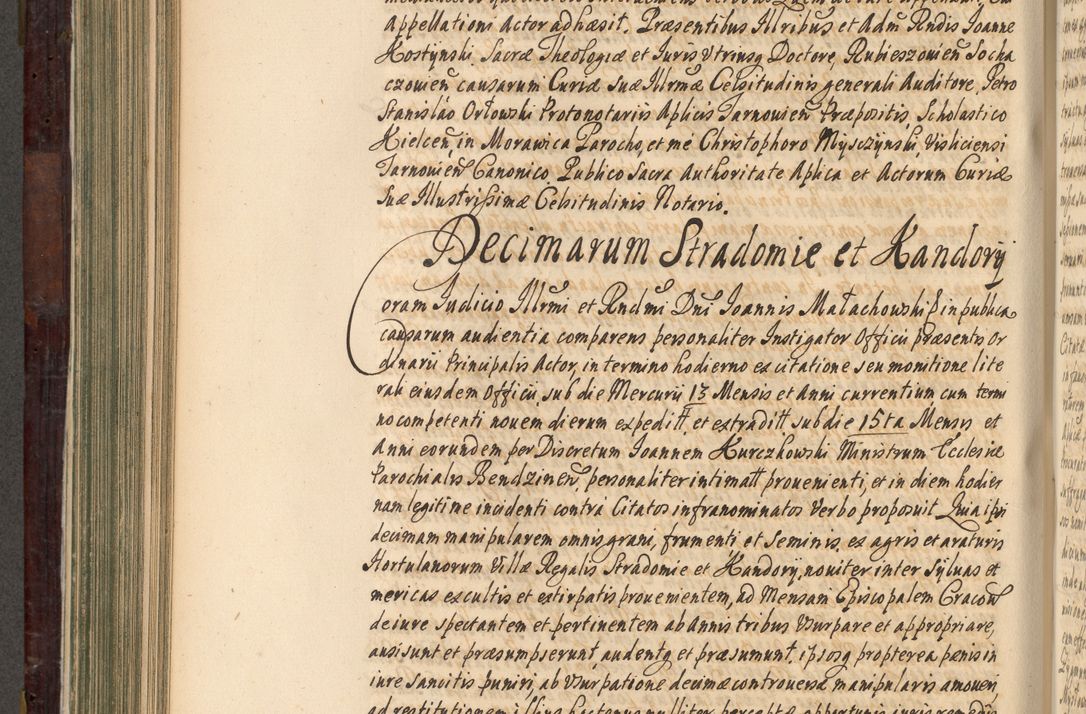 Appellationi Actor adhæsit. Præsentibus Illribus et Adm Rndis Joanne
Kostÿnski Sacræ Theologiæ et Juris Vtriusq Doctore, Rubieszovien Socha
czovien causarum Curiæ Suæ Illrmæ Celsitudinis generali Auditore, Petro
Stanislao Orłowski Protonotariis Aplicis Tarnovien Præpositis, Scholastico
Kielcen, in Morawica Parocho, et me Christophoro Mysczÿnski, Visliciensi
Tarnovien Canonico, Publico Sacra Authoritate Aplica et Actorum Curiæ
Suæ Illustrissimæ Celsitudinis Notario.
Decimarum Stradomie et Kandorÿ
Coram Judicio Illrmi et Rndmi Dni Joannis Małachowski in publica
causarum audientia comparens personaliter Instigator Officii præsentis Or
dinarii Principalis Actor, in termino hodierno ex citatione seu monitione lite
rali eiusdem Officii, sub die Mercurii 13 Mensis et Anni currentium cum termi
no competenti novem dierum expeditt, et extraditt sub die 15ta Mensis et
Anni eorundem per Discretum Joannem Kurczkowski Ministrum Ecclesiæ
Parochialis Bendzinen, personaliter intimatt provenienti, et in diem hodier
nam legitime incidenti contra Citatos infranominatos Verbo proposuit Quia ipsi
decimam manipularem omnis grani, frumenti et Seminis, ex agris et araturis
Hortulanorum Villæ Regalis Stradomie et Kandorÿ, noviter inter Sÿluas et
mericas excultis et extirpatis provenientem, ad Mensam Episcopalem Cracovien
de iure spectantem et pertinentem ab Annis tribus Vsurpare et appropriare,
ausi sunt et præsumpserunt, audentq et præsumunt, ipsosq propterea pænis in
iure sancitis puniri, ab Vsurpatione decimæ controversæ manipularis amoveri,
ad restitutionem illius hactenus nulliter perceptæ